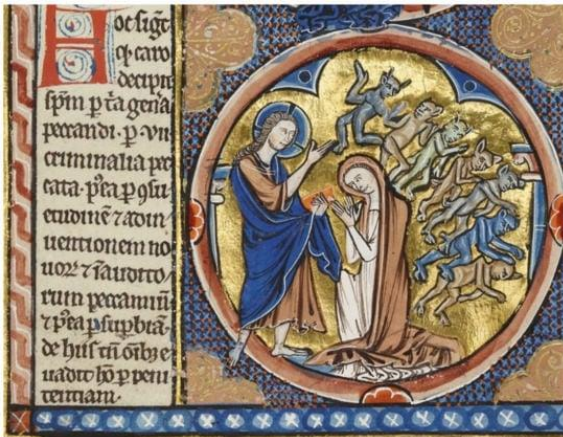 oc sigt
qͥ caro
decipit
spm p tͥa genͣa
peccandi. p vii
criminalia pec
cata. pͦea p ꝯsu
etudinē ⁊ adin
uentionem no
uoꝝ ⁊ īaudito
rum peccaminū
⁊ pͦea p supbiā.
de hiis tn̄ oībꝫ e
uadit hō p peni
tentiam.